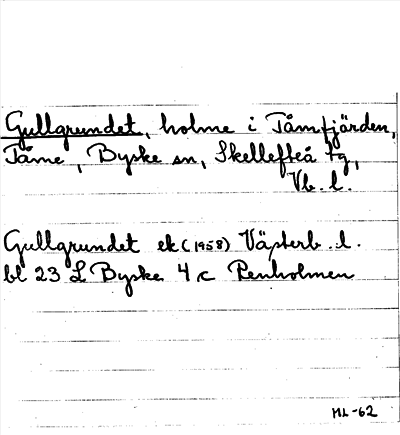 Gullgrundet, holme i Tåmfjärden,
Tåme, Byske sn, Skellefteå tg,
Vb. l.
Gullgrundet ek (1958) Västerb. l.
bl 23 L Byske 4 c Renholmen
ML-62